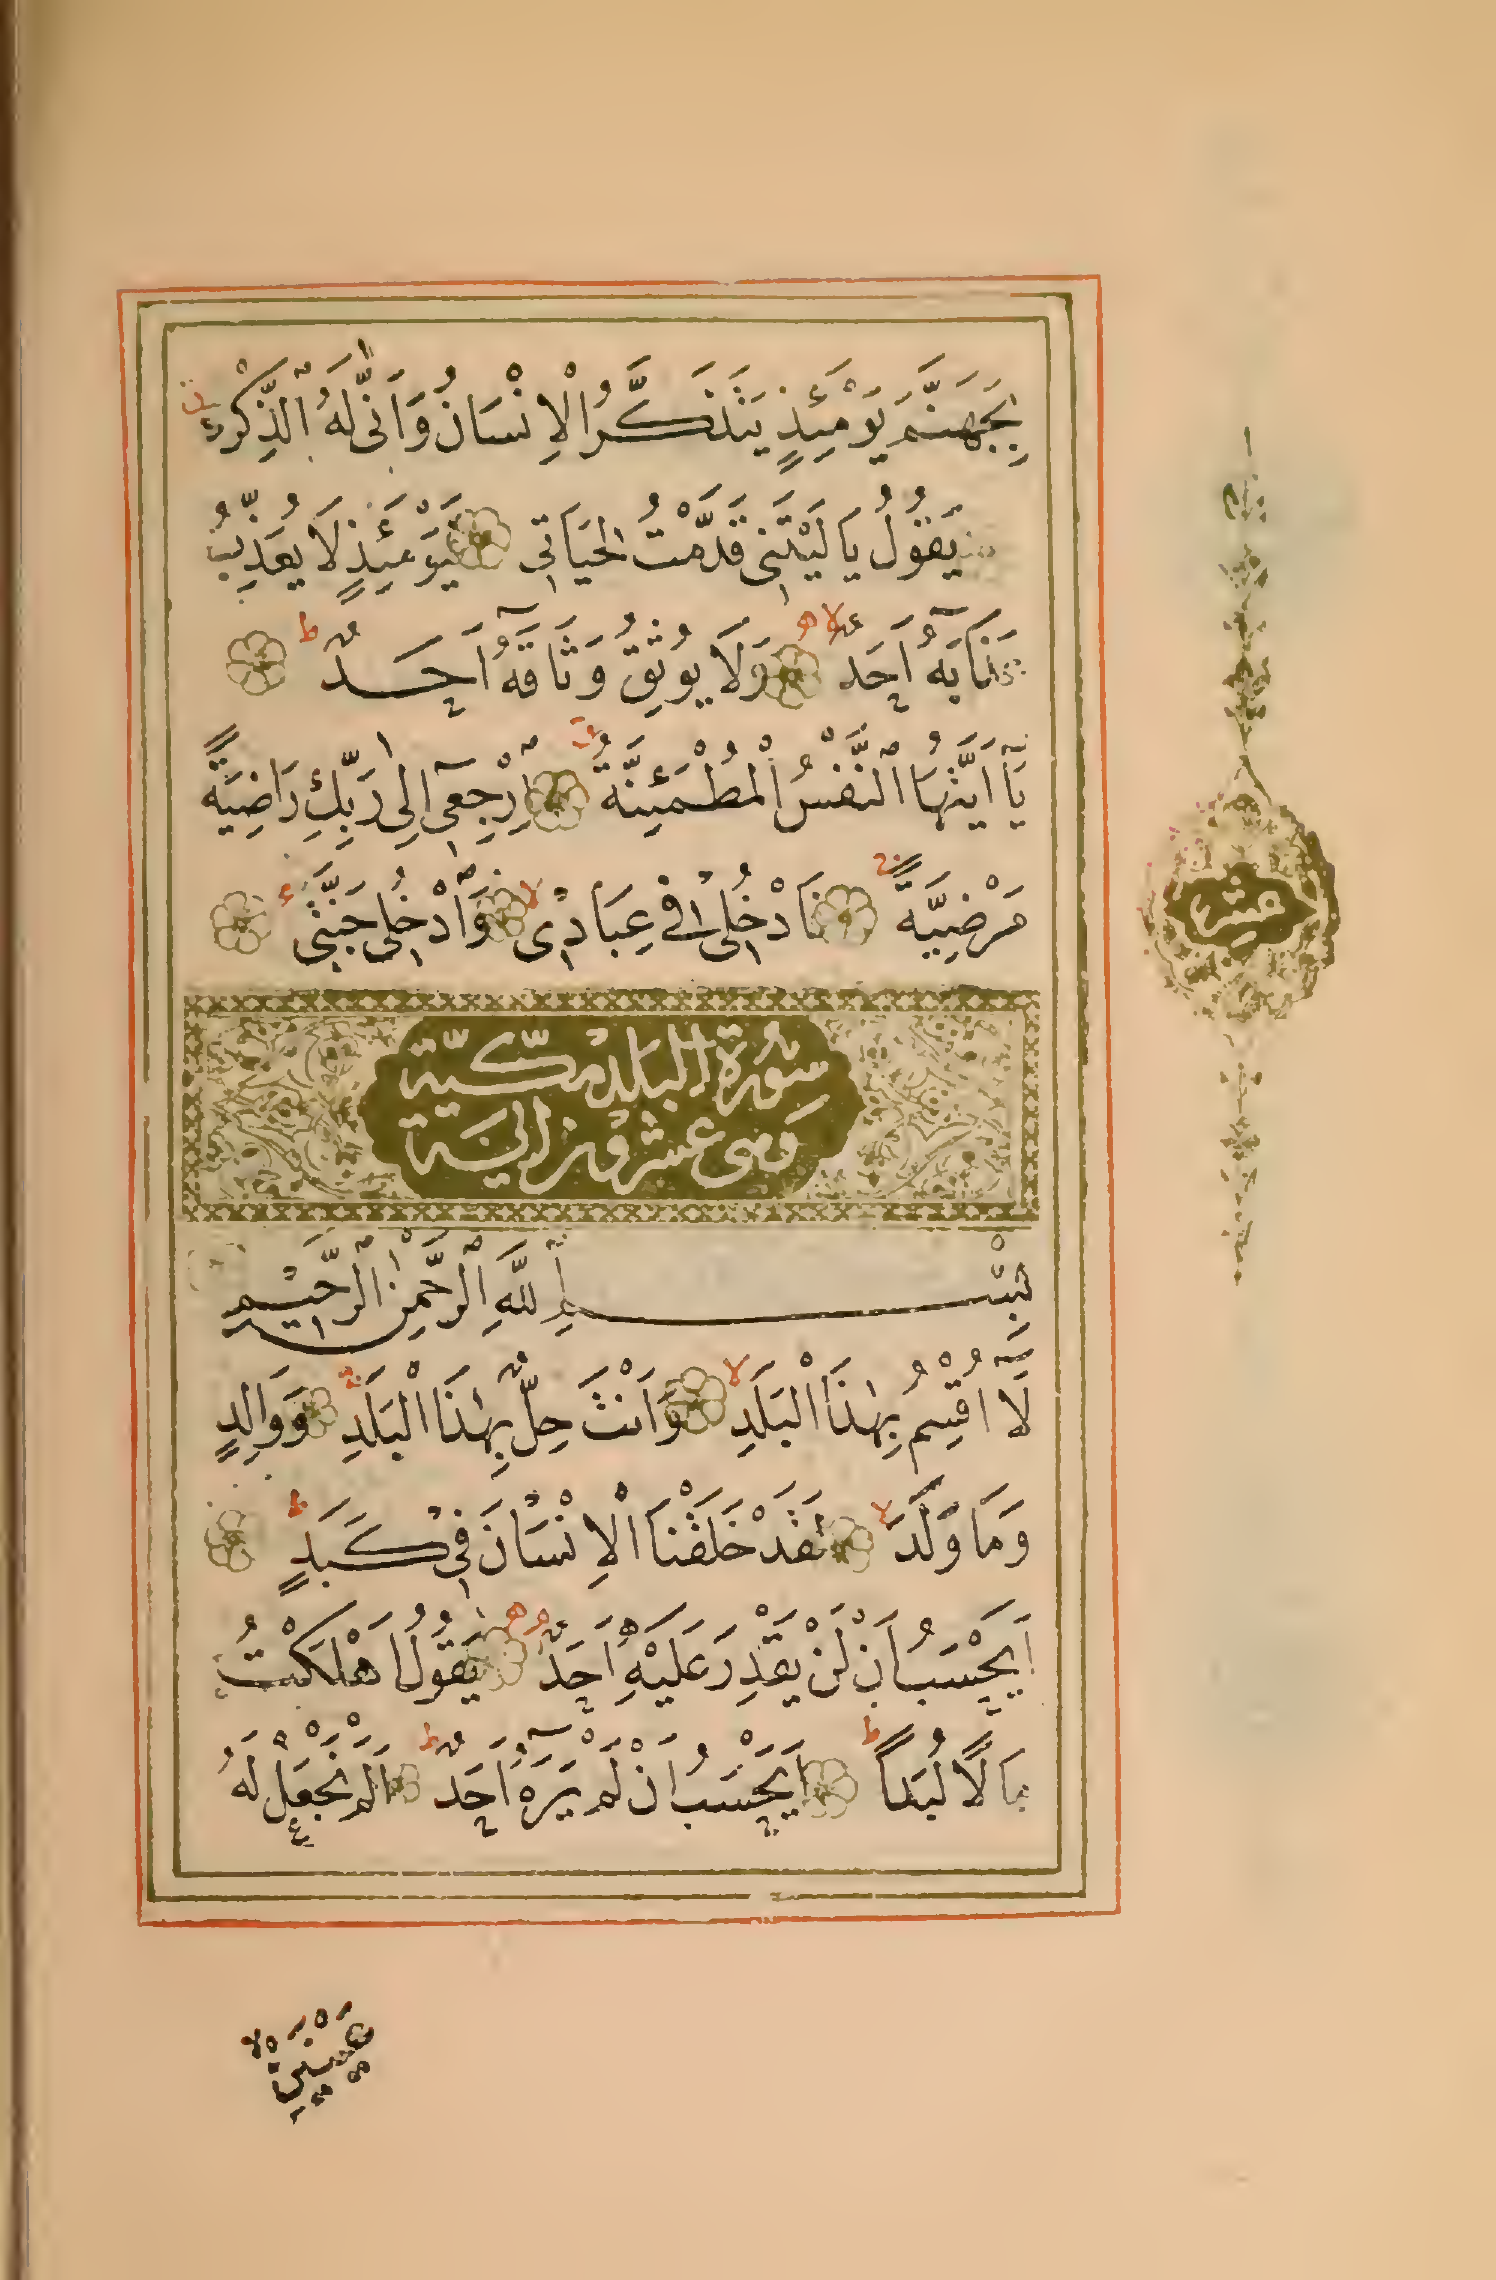 بِجَهَنَّمَ يَوْمَئِذٍ يَتَذَكَّرُ الْاِنْسَانُ وَاَنّٰى لَهُ الذِّكْرٰى
يَقُولُ يَا لَيْتَنِي قَدَّمْتُ لِحَيَاتِي فَيَوْمَئِذٍ لَا يُعَذِّبُ
عَذَابَهُ اَحَدٌ وَلَا يُوثِقُ وَثَاقَهُ اَحَدٌ
يَا اَيَّتُهَا النَّفْسُ الْمُطْمَئِنَّةُ اِرْجِعِي اِلٰى رَبِّكِ رَاضِيَةً
مَرْضِيَّةً فَادْخُلِي فِي عِبَادِي وَادْخُلِي جَنَّتِي
سُورَةُ الْبَلَدِ مَكِّيَّة
وَهِيَ عِشْرُونَ اٰيَة
بِسْمِ اللّٰهِ الرَّحْمٰنِ الرَّحِيمِ
لَا اُقْسِمُ بِهٰذَا الْبَلَدِ وَاَنْتَ حِلٌّ بِهٰذَا الْبَلَدِ وَوَالِدٍ
وَمَا وَلَدَ لَقَدْ خَلَقْنَا الْاِنْسَانَ فِي كَبَدٍ
اَيَحْسَبُ اَنْ لَنْ يَقْدِرَ عَلَيْهِ اَحَدٌ يَقُولُ اَهْلَكْتُ
مَالًا لُبَدًا اَيَحْسَبُ اَنْ لَمْ يَرَهُ اَحَدٌ اَلَمْ نَجْعَلْ لَهُ
عَيْنَيْنِ
عشر